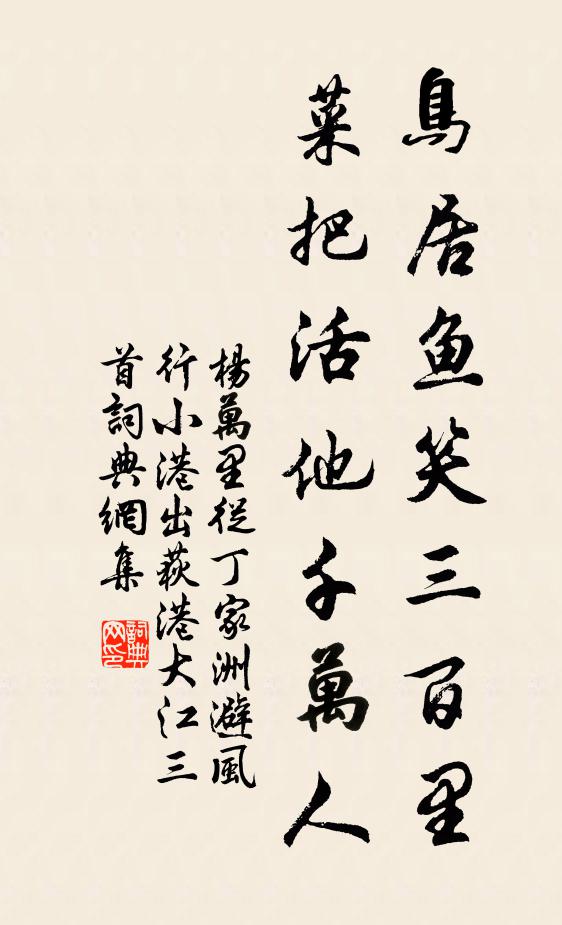 島居魚笑三百里
菜把活他千萬人
楊萬里從丁家洲避風
行小港出荻港大江三
首詞典網集
詞典網印